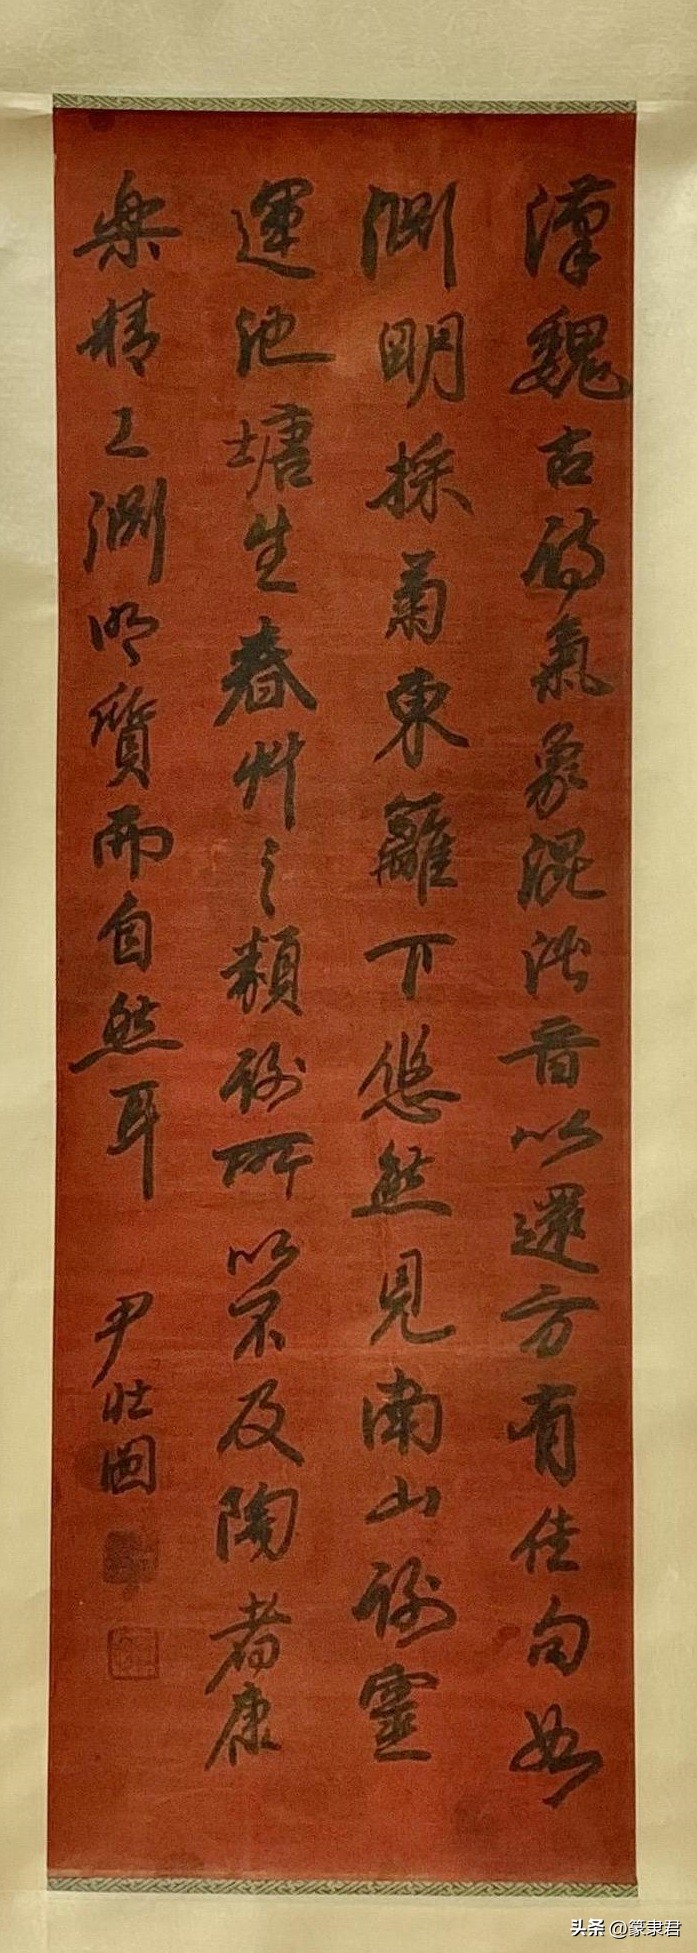 漢魏古詩氣象混沌晉以還方有佳句如
淵明採菊東籬下悠然見南山謝靈
運池塘生春艸之類謝所以不及陶者康
樂精工淵明質而自然耳
尹壯圖
头条 @篆隶君